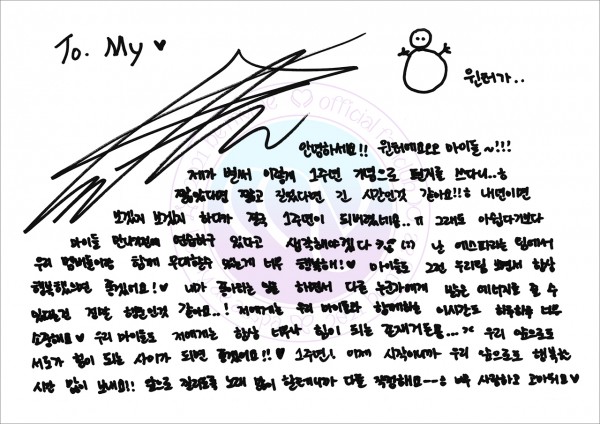 To. My ♥
윈터가..
안녕하세요!! 윈터예요오오 마이들~!!!
제가 벌써 이렇게 1주년 기념으로 편지를 쓰다니..ㅎ
짧았다면 짧고 길었다면 긴 시간인것 같아요!!ㅎ 내년이면
보겠지 보겠지 하다가 결국 1주년이 되버렸네요..ㅠ 그래도 아쉽다기보다
마이들 만나기전에 연습하구 있다고 생각해야겠다 날 에스파라는 팀에서
우리 멤버들이랑 함께 무대할수 있는게 너무 행복해! ♡ 마이들도 그런 우리팀 보면서 항상
행복했으면 좋겠어요! 내가 좋아하는 일을 하면서 다른 누군가에게 밝은 에너지를 줄 수
있다는건 정말 행운인것 같아요..! 저에게는 우리 마이들과 함께하는 이시간도 하루하루 너무
소중해요♥ 우리 마이들도 저에게는 항상 너무나 힘이 되는 존재거든용... 우리 앞으로도
서로가 힘이 되는 사이가 되면 좋겠어요!! ♥ 1주년! 이제 시작이니까 우리 앞으로도 행복한
시간 많이 보내요!! 앞으로 질리도록 노래 많이 할테니까 다들 걱정해요 너무 사랑하고 고마워요♡
official